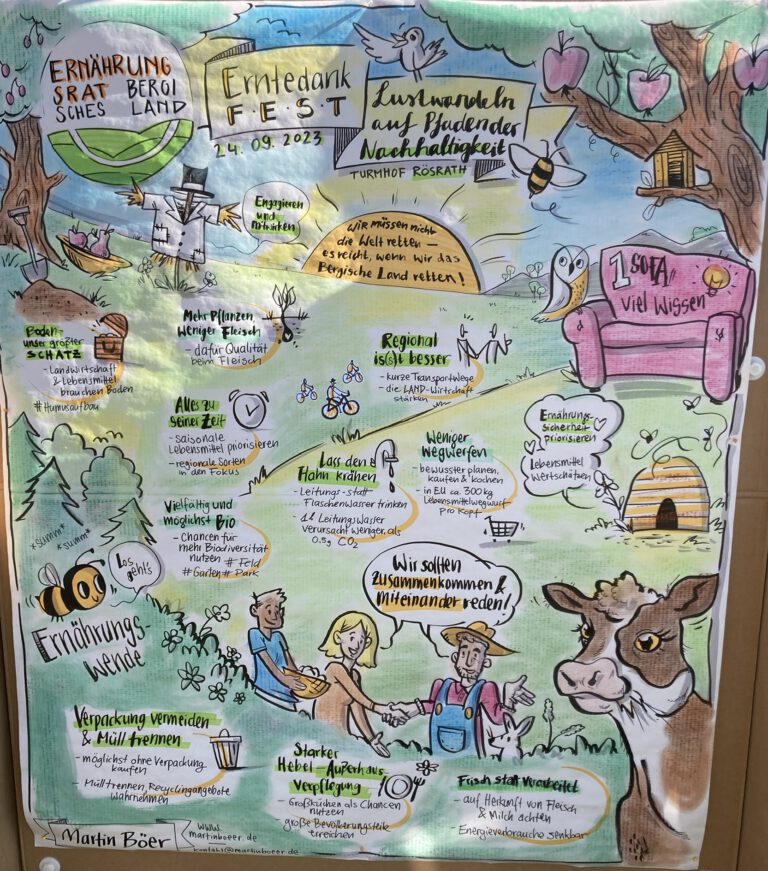 ERNÄHRUNG
SRAT BERGI
SCHES LAND
Erntedank
F·E·S·T
24. 09. 2023
Lustwandeln
auf Pfaden der
Nachhaltigkeit
TURMHOF RÖSRATH
Engagieren
und
mitwirken
wir müssen nicht
die Welt retten –
es reicht, wenn wir das
Bergische Land retten!
1 SOFA
viel Wissen
Boden-
unser größter
SCHATZ
- Landwirtschaft
& Lebensmittel
brauchen Boden
#Humusaufbau
Mehr Pflanzen,
weniger Fleisch
- dafür Qualität
beim Fleisch
Regional
is(s)t besser
- kurze Transportwege
- die LAND-Wirtschaft
stärken
Alles zu
seiner Zeit
- saisonale
Lebensmittel priorisieren
- regionale Sorten
in den Fokus
Lass den
Hahn krähen
- Leitungs- statt
Flaschenwasser trinken
- 1l Leitungswasser
verursacht weniger als
0.5g CO2
Weniger
Wegwerfen
- bewusster planen,
kaufen & kochen
- in EU ca. 300kg
Lebensmittelwegwurf
pro Kopf
Ernährungs-
sicherheit
priorisieren
Lebensmittel
Wertschätzen
Vielfältig und
möglichst Bio
- Chancen für
mehr Biodiversität
nutzen #Feld
#Garten #Park
*summ*
*summ*
Los
geht's
Ernährungs-
Wende
Wir sollten
zusammenkommen &
miteinander reden!
Verpackung vermeiden
& Müll trennen
- möglichst ohne Verpackung
kaufen
- Müll trennen, Recyclingangebote
wahrnehmen
Starker
Hebel - Außerhaus-
verpflegung
- Großküchen als Chancen
nutzen
große Bevölkerungsteile
erreichen
Frisch statt verarbeitet
- auf Herkunft von Fleisch
& Milch achten
- Energieverbrauche senkbar
Martin Böer
www.
martinboeer.de
kontakt@martinboeer.de